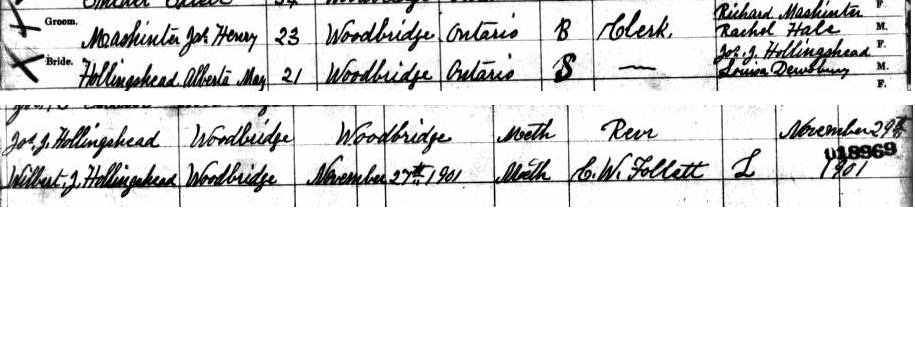 Groom.
Richard Mashinter F.
Mashinter Jos. Henry 23 Woodbridge Ontario B Clerk. Rachel Hale M.
Bride.
Jos. J. Hollingshead F.
Hollingshead Alberta May 21 Woodbridge Ontario S — Louisa Dewsbury M.
F.
Jos. J. Hollingshead Woodbridge Woodbridge Meth Revr November 29th
018969
Wilbert. J. Hollingshead Woodbridge November 27th 1901 Meth C. W. Follett L 1901